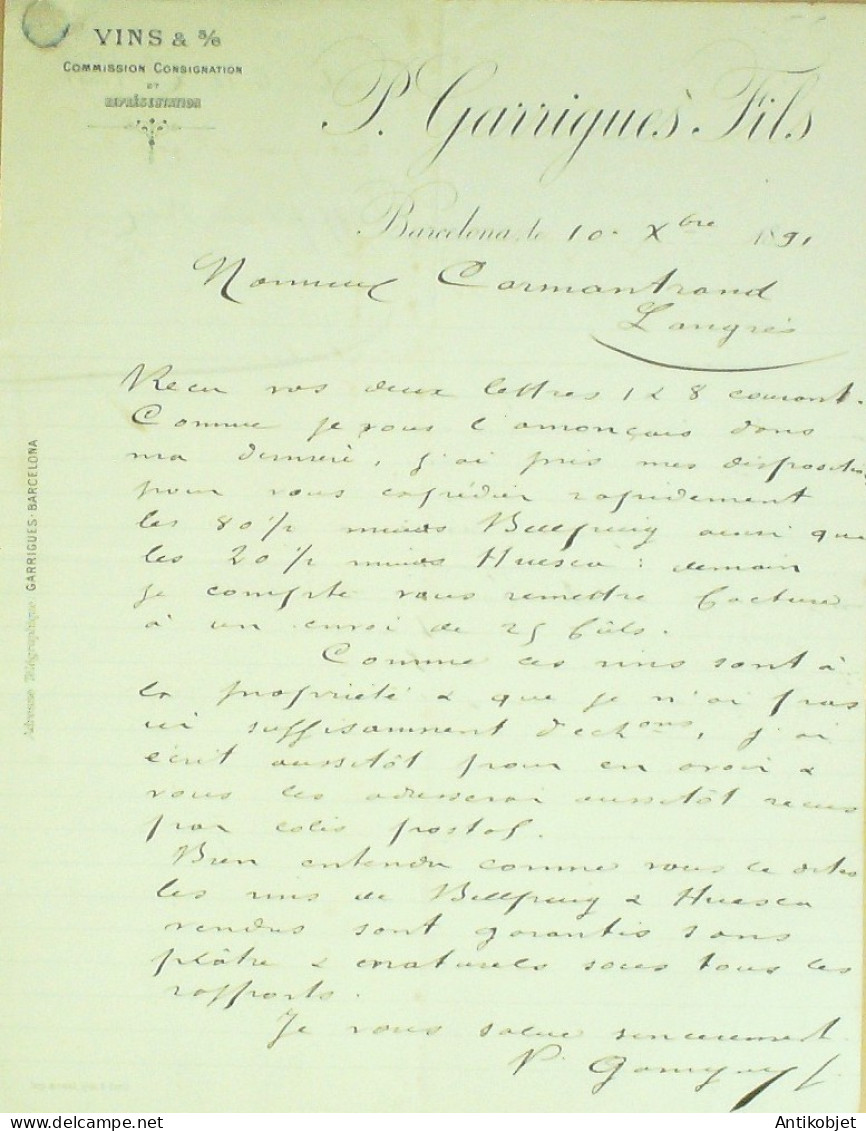 VINS & S/S
COMMISSION CONSIGNATION
ET
REPRÉSENTATION
P. Garrigues Fils
Barcelona, le 10 Xbre 1891
Monsieur Cormantrand
Langres
Recu vos deux lettres 1 & 8 courant.
Comme je vous l'anonçais dans
ma derniere, j'ai pris mes disposition
pour vous expédier rapidement
les 80 1/2 muids Bellpuig ainsi que
les 20 1/2 muids Huesca : demain
je compte vous remettre facture
à un envoi de 25 fûts.
Comme ces vins sont à
la propriété & que je n'ai pas
ici suffisamment d'echons, j'ai
écrit aussitôt pour en avoir &
vous les adresserai aussitôt recus
par colis postal.
Bien entendu comme vous le dites
les vins de Bellpuig & Huesca
vendus sont garantis sans
plâtre & naturels sous tous les
rapports.
Je vous salue sincerement
P. Garrigues f
Adresse Télégraphique GARRIGUES-BARCELONA
Antikobjet